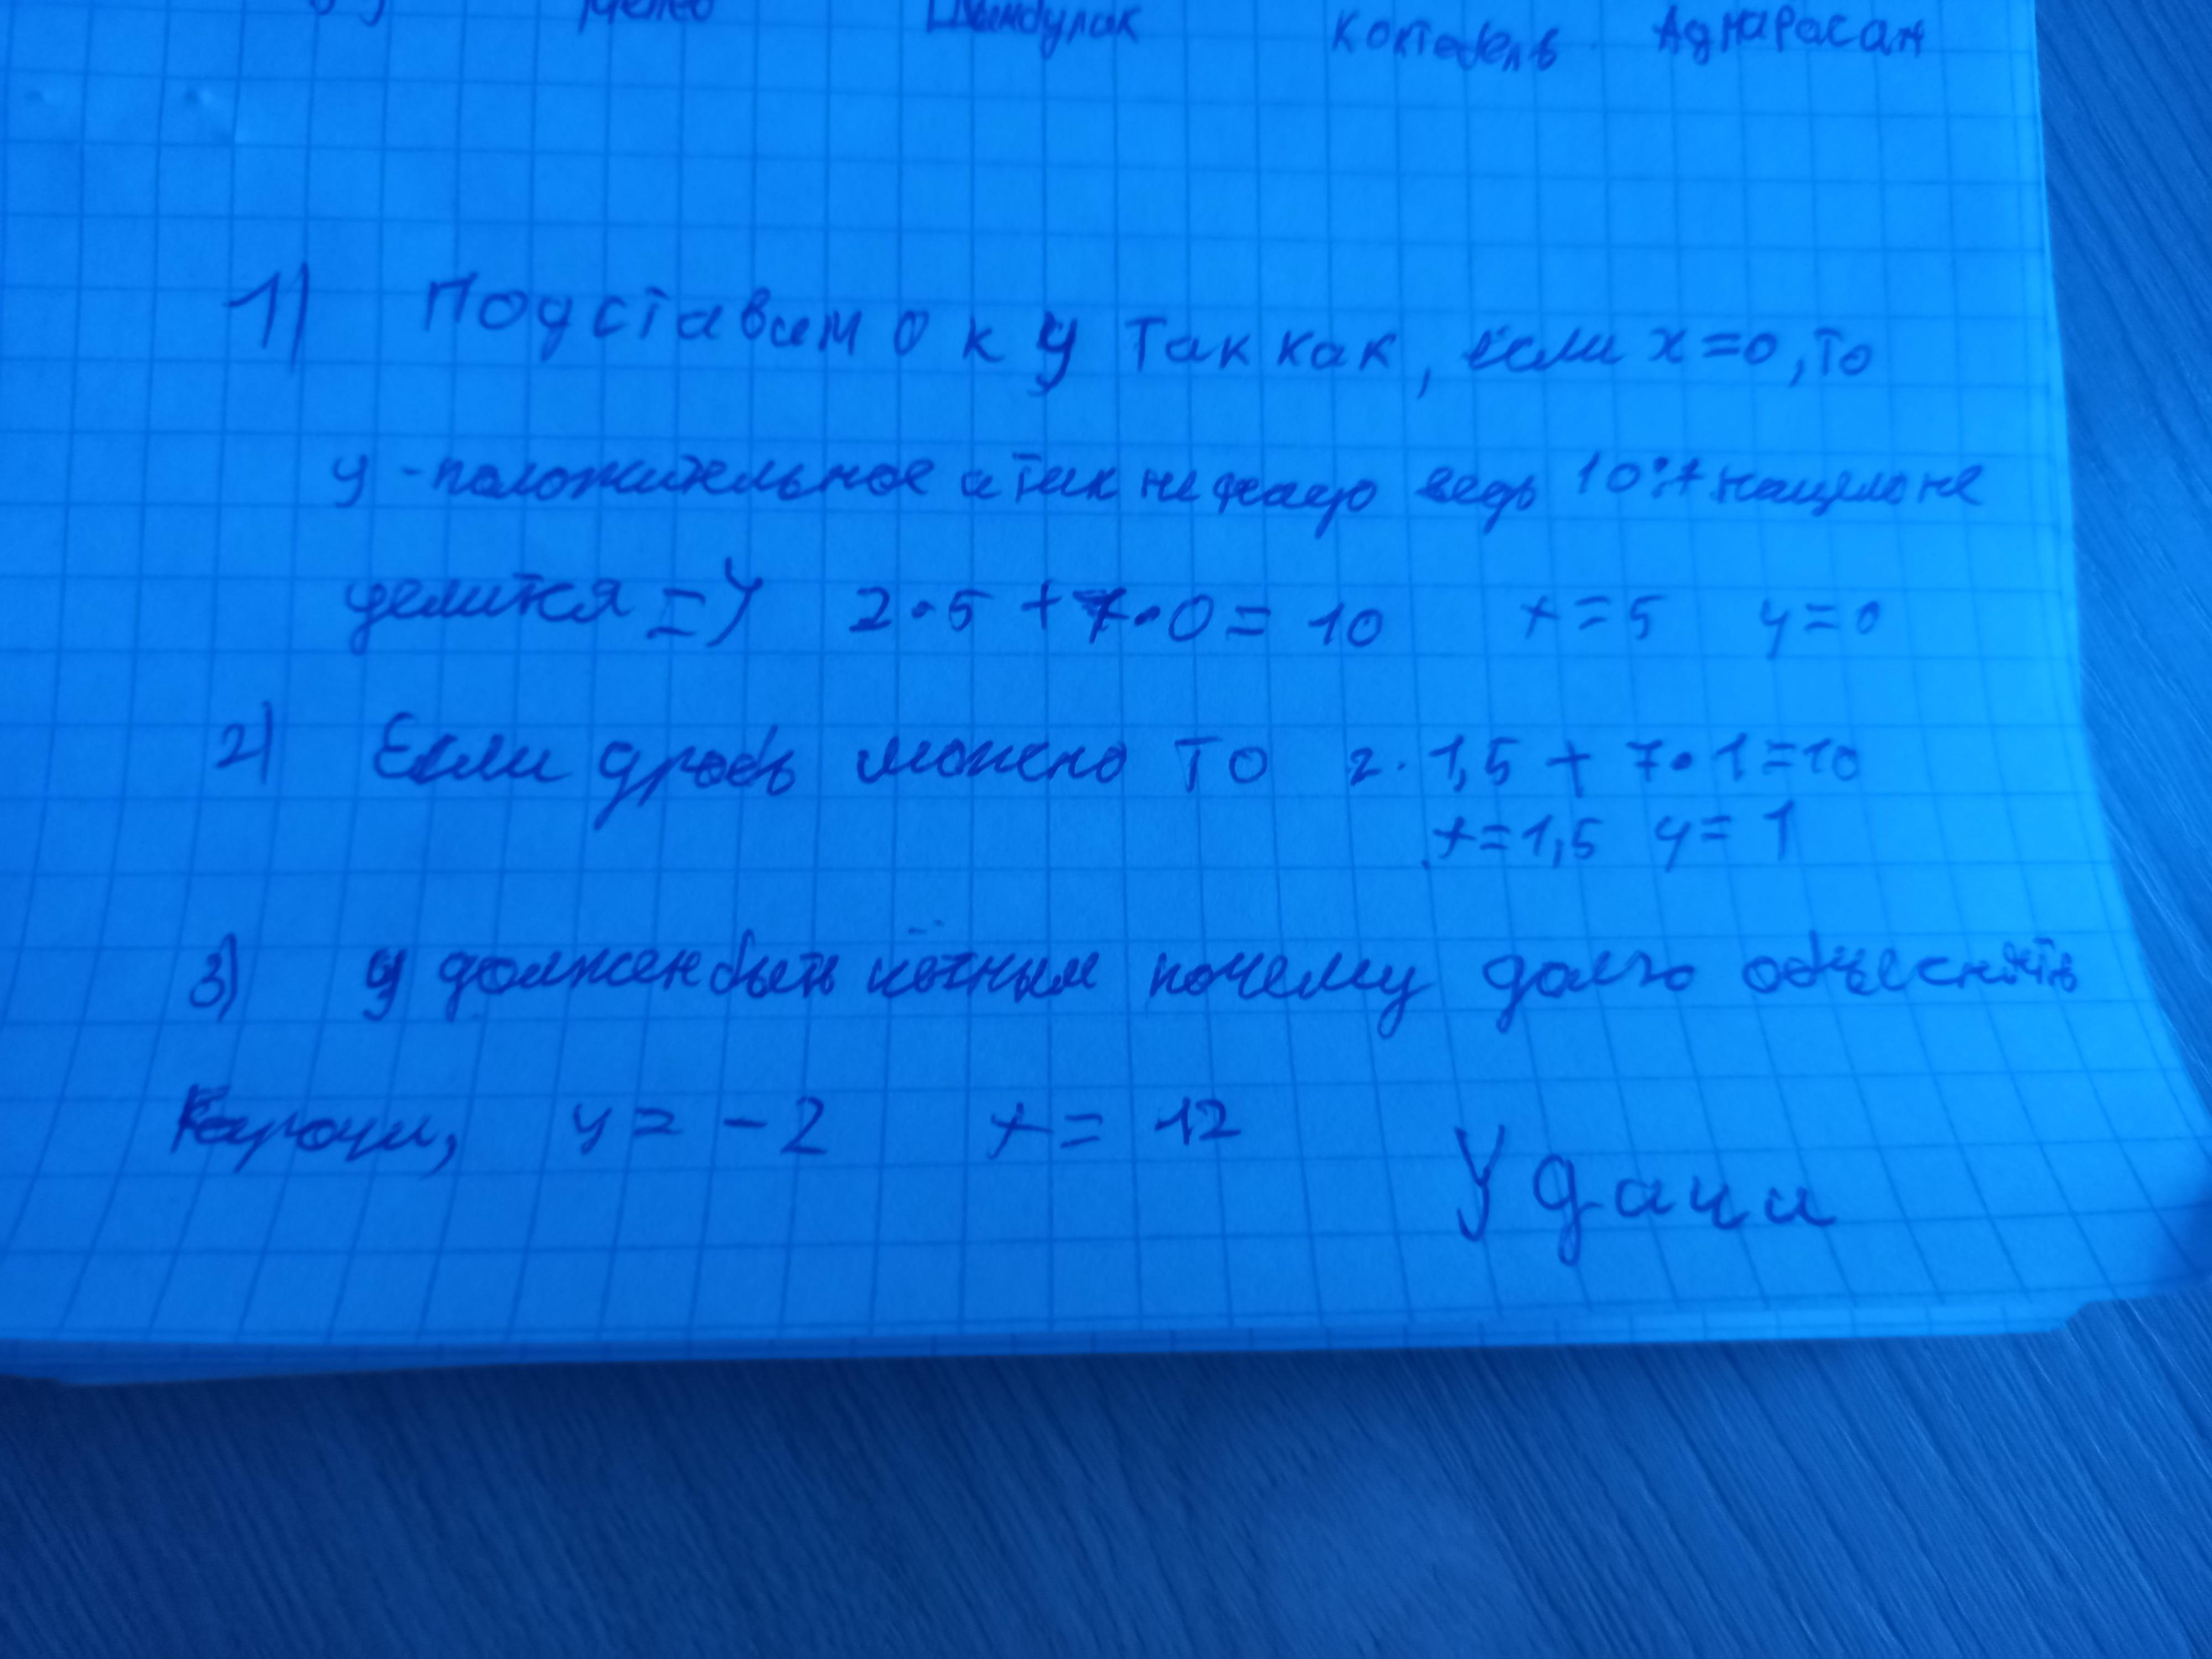 Шымбулак Коктебель Аднарасан
1) Подставим 0 к y так как, если x=0, то
y - положительное а так не надо ведь 10:7 нацело не
делится => 2·5 + 7·0 = 10 x=5 y=0
2) Если дробь можно то 2·1,5 + 7·1=10
x=1,5 y=1
3) y должен быть чётным почему долго объеснять
Карочи, y= -2 x= 12
Удачи